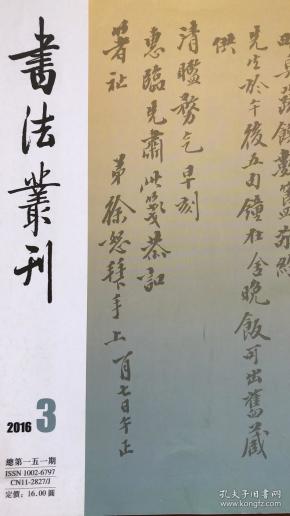 書法叢刊
2016 3
總第一五一期
ISSN 1002-6797
CN11-2827/J
定價：16.00圓
供
先生於午後五句鐘在舍晚飯可出舊藏
清鑒務乞早刻
惠臨先肅此箋恭訂
著祉
弟徐恕拜手上 一月七日午正
孔夫子旧书网